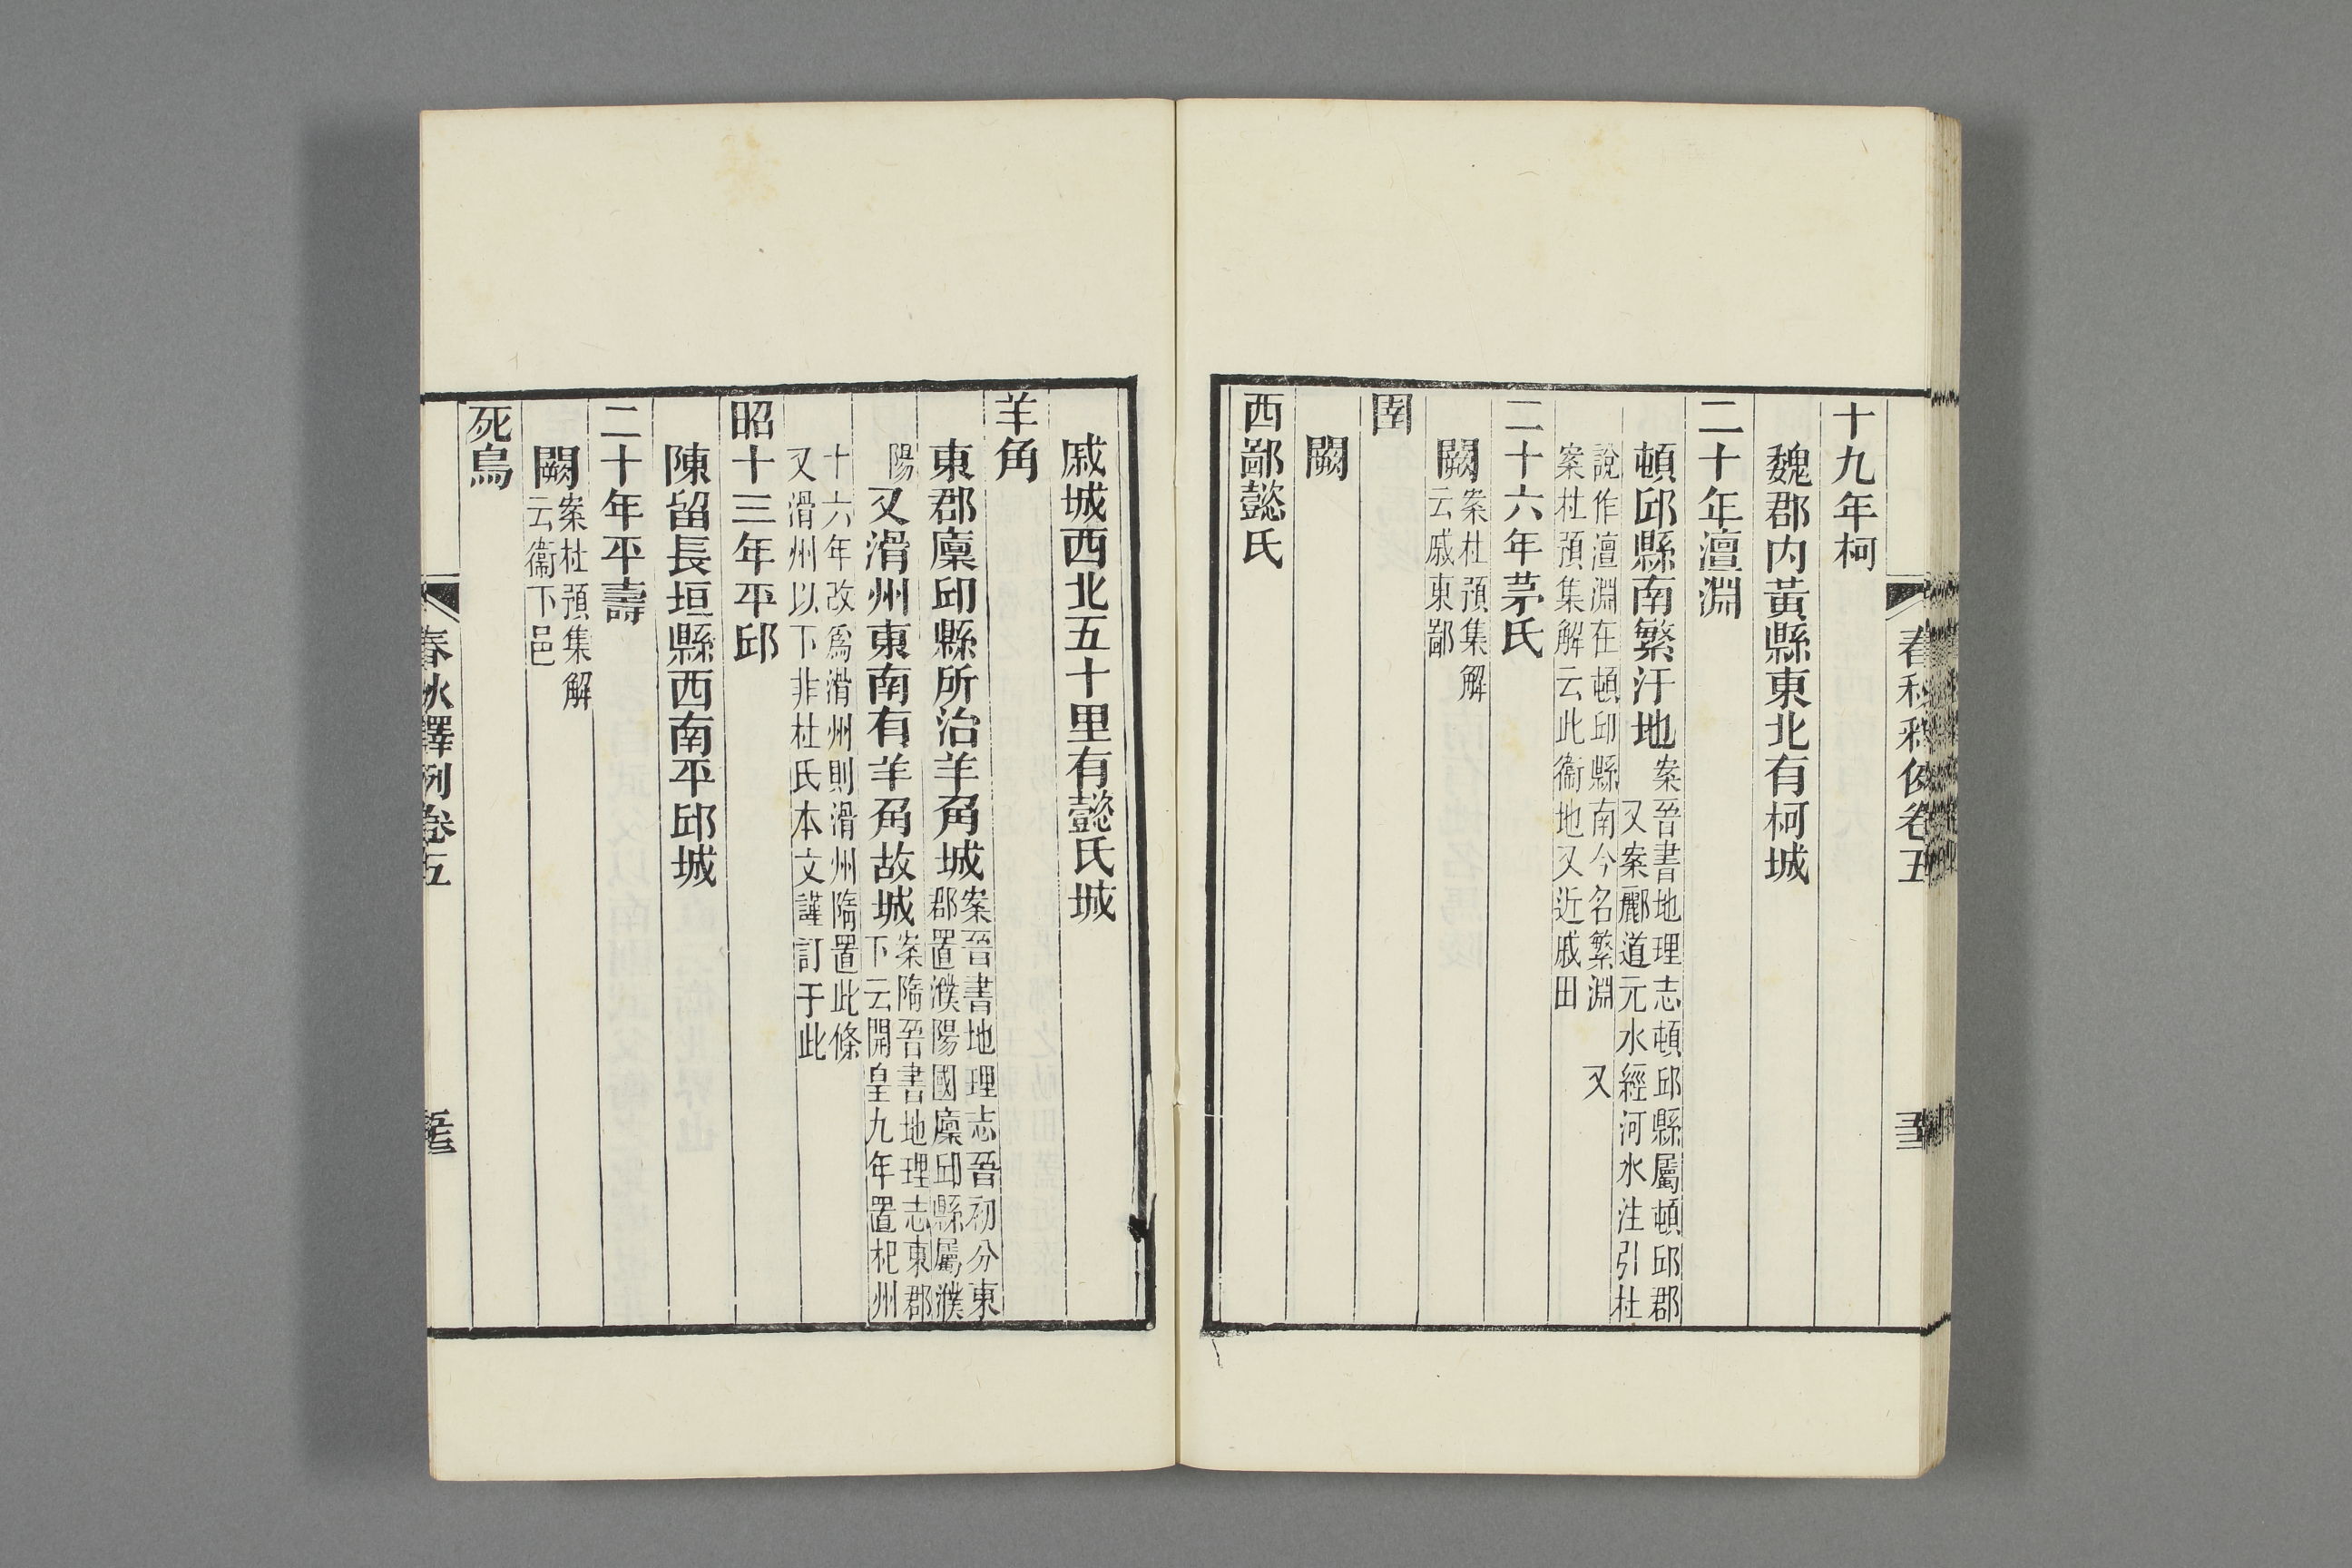 十九年柯
魏郡内黃縣東北有柯城
二十年澶淵
頓邱縣南繁汙地案晉書地理志頓邱縣屬頓邱郡
又案酈道元水經河水注引杜
說作澶淵在頓邱縣南今名繁淵　又
案杜預集解云此衞地又近戚田
二十六年茅氏
闕案杜預集解
云戚東鄙
圉
闕
西鄙懿氏
春秋釋例卷五
戚城西北五十里有懿氏城
羊角
東郡廩邱縣所治羊角城案晉書地理志晉初分東
郡置濮陽國廩邱縣屬濮
陽
又滑州東南有羊角故城案隋晉書地理志東郡
下云開皇九年置杞州
十六年改爲滑州則滑州隋置此條
又滑州以下非杜氏本文謹訂于此
昭十三年平邱
陳留長垣縣西南平邱城
二十年平壽
闕案杜預集解
云衞下邑
死鳥
春秋釋例卷五